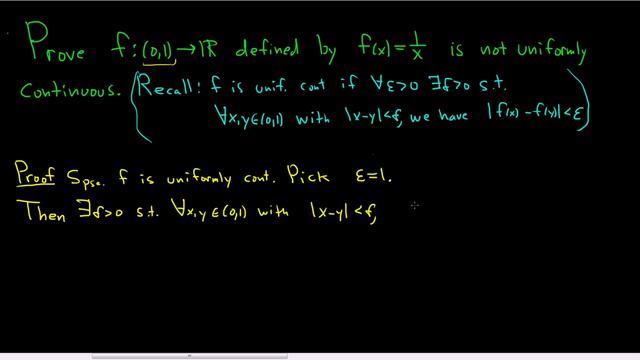 Prove f:(0,1)→ℝ defined by f(x)=1/x is not uniformly
continuous. (Recall: f is unif. cont if ∀ε>0 ∃δ>0 s.t.
∀x,y∈(0,1) with |x-y|<δ, we have |f(x)-f(y)|<ε)
Proof Spse. f is uniformly cont. Pick ε=1.
Then ∃δ>0 s.t. ∀x,y∈(0,1) with |x-y|<δ,